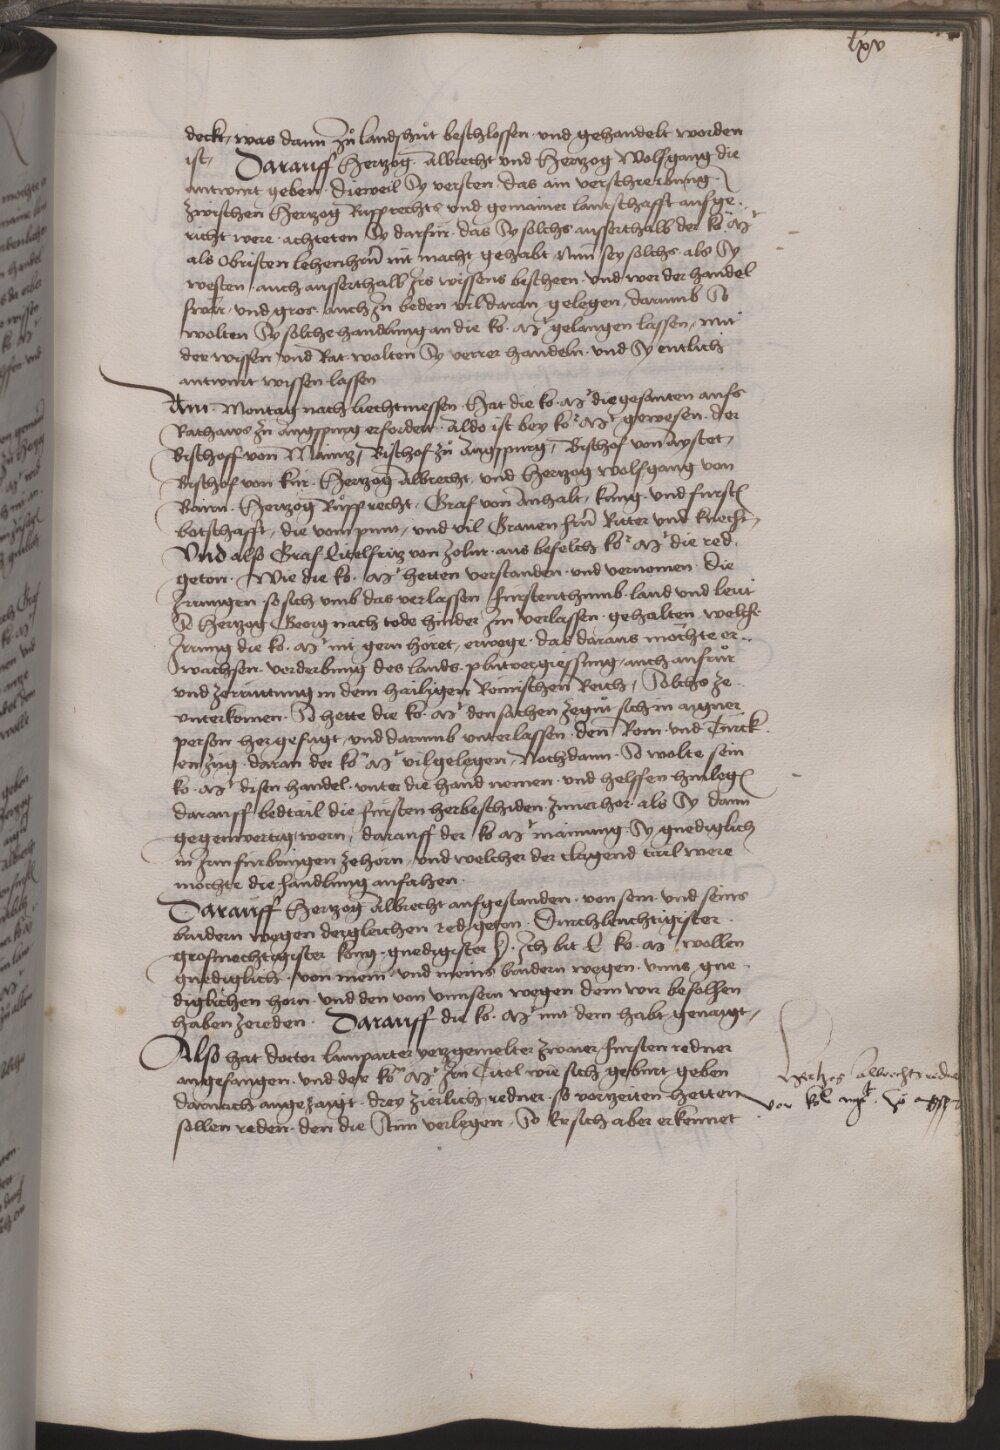 lxv
deckt, was dann zu landshut beschlossen und gehandelt worden
ist, Darauff Hertzog Albrecht und Hertzog Wolfgang die
antwurt geben. dieweil Sy versten das ain verschreibung
zwischen Hertzog Rupprechts und gemainer lantschafft aufge-
richt were. achteten Sy darfur. das Sy solchs ausserthalb der ko. Mt
als Obristen lehenhern nit macht gehabt Nun sey solchs als Sy
westen. auch ausserthalb Irs wissens bescheen. und wer der handel
swär. und gros. auch In beden vil daran gelegen. darumb So
wolten Sy solche handlung an die ko. Mt gelangen lassen, mit
der wissen und Rat wolten Sy verrer handeln. und Sy entlich
antwurt wissen lassen
Am Montag nach liechtmessen. Hat die ko. Mt die gesanten aufs
Rathaws zu augspurg erfordert. Aldo ist bey ko. Mt gewesen. der
Bischoff von Maintz, Bischof zu Augspurg, Bischof von Aystet,
Bischof von Kur. Hertzog Albrecht, und Hertzog wolfgang von
Bairn. Hertzog Rupprecht. Graf von Anhalt, kung und furstn
botschafft, die vom punt, und vil Grauen hern Ritter und knecht,
Und also Graf Eitelfritz von Zolrn. aus befelch ko. Mt die red
geton. Wie die ko. Mt hetten verstanden und vernomen. die
Irrungen. so sich umb das verlassen furstenthumb. land und leut
So Hertzog Georg nach tode hinder Im verlassen. gehalten welche
Irrung die ko. Mt nit gern höret, erwege. das daraus möchte er-
wachsen. verderbung des lands. plutvergiessung, auch aufrur
und zerruttung in dem hailigen Römischen Reich, Solchs ze-
unterkomen. So hette die ko. Mt den sachen zegut sich in aigner
person hergefugt, und darumb unterlassen. den Rom und Türck
enzug. daran der ko. Mt vil gelegen, Nochdann. So wolte sein
ko. Mt disen handel. unter die hand nemen. und helffen hinlegn
darauff bedtail die fursten herbeschiden zuuerhor. als Sy dann
gegenwertig wern, darauff der ko Mt mainung. Sy gnediglich
in Irm furbringen zehörn, und welcher der clagend tail were
möchte die handlung anfahen.
Darauff Hertzog Albrecht aufgestanden. von sein und seins
brudern wegen dergleichen red geton. Durchleuchtigister
grosmechtigister konig. gnedigister H. Ich bit E. ko. Mt wollen
gnediglich. von mein und meins brudern wegen. unns gne-
diglichen horn. und den von unnsern wegen dem wir befolhen
haben zereden. Darauff die ko. Mt mit dem habt genaigt,
Also hat doctor lamparter vorgemelter zwaier fursten redner
angefangen. und der ko. Mt Irn Titel wie sich geburt geben
darnach angezaigt. drey zierlich redner. so vorzeiten hetten
sollen reden. den die Stim verlegen, So Er sich aber erkennet
Hertzog Albrechts redner
vor ko. mt. zu